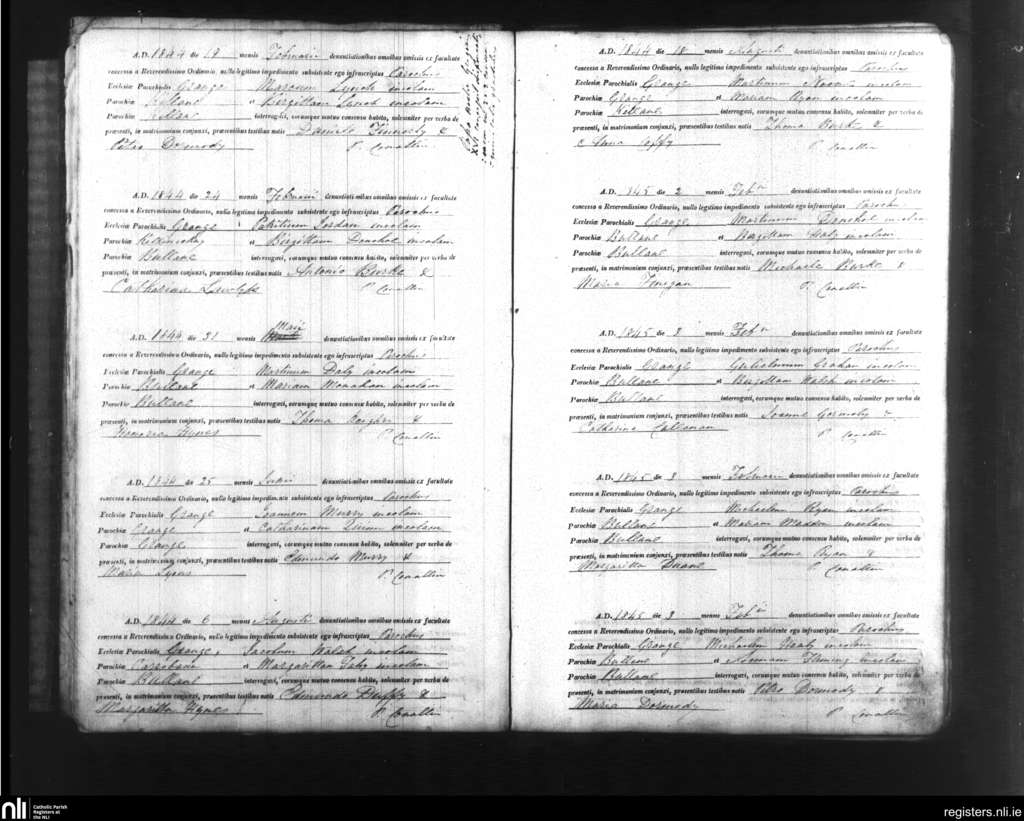 A.D. 1844 die 18 mensis Februarii denuntiationibus omnibus omissis ex facultate
concessa a Reverendissimo Ordinario, nullo legitimo impedimento subsistente ego infrascriptus Parochus
Ecclesiæ Parochialis Grange Marcum Lynch incolam
Parochiæ Bullane et Birgittam Lynch incolam
Parochiæ interrogavi, eorumque mutuo consensu habito, solemniter per verba de
præsenti, in matrimonium conjunxi, præsentibus testibus notis Daniele Finnerty &
Petro Dormody P. Conallin
A.D. 1844 die 24 mensis Februarii denuntiationibus omnibus omissis ex facultate
concessa a Reverendissimo Ordinario, nullo legitimo impedimento subsistente ego infrascriptus Parochus
Ecclesiæ Parochialis Grange Patritium Jordan incolam
Parochiæ et Birgittam incolam
Parochiæ Bullane interrogavi, eorumque mutuo consensu habito, solemniter per verba de
præsenti, in matrimonium conjunxi, præsentibus testibus notis Antonio Burke &
Catharina P. Conallin
Maii
A.D. 1844 die 21 mensis denuntiationibus omnibus omissis ex facultate
concessa a Reverendissimo Ordinario, nullo legitimo impedimento subsistente ego infrascriptus Parochus
Ecclesiæ Parochialis Grange Martinum Daly incolam
Parochiæ Bullane et Mariam Monahan incolam
Parochiæ Bullane interrogavi, eorumque mutuo consensu habito, solemniter per verba de
præsenti, in matrimonium conjunxi, præsentibus testibus notis Thoma &
Honoria Hynes P. Conallin
A.D. 1844 die 25 mensis denuntiationibus omnibus omissis ex facultate
concessa a Reverendissimo Ordinario, nullo legitimo impedimento subsistente ego infrascriptus Parochus
Ecclesiæ Parochialis Grange Joannem Murry incolam
Parochiæ Grange et Catharinam Quinn incolam
Parochiæ Grange interrogavi, eorumque mutuo consensu habito, solemniter per verba de
præsenti, in matrimonium conjunxi, præsentibus testibus notis Edmundo Murry &
Maria Lyons P. Conallin
A.D. 1844 die 6 mensis Augusti denuntiationibus omnibus omissis ex facultate
concessa a Reverendissimo Ordinario, nullo legitimo impedimento subsistente ego infrascriptus Parochus
Ecclesiæ Parochialis Grange Jacobum Walsh incolam
Parochiæ et Margarittam incolam
Parochiæ Bullane interrogavi, eorumque mutuo consensu habito, solemniter per verba de
præsenti, in matrimonium conjunxi, præsentibus testibus notis Edmundo Duffy &
Margaritta Hynes P. Conallin
A.D. 1844 die 18 mensis Augusti denuntiationibus omnibus omissis ex facultate
concessa a Reverendissimo Ordinario, nullo legitimo impedimento subsistente ego infrascriptus Parochus
Ecclesiæ Parochialis Grange Martinum incolam
Parochiæ Grange et Mariam Ryan incolam
Parochiæ interrogavi, eorumque mutuo consensu habito, solemniter per verba de
præsenti, in matrimonium conjunxi, præsentibus testibus notis Thoma Burke &
Anna P. Conallin
A.D. 1845 die 2 mensis Feb denuntiationibus omnibus omissis ex facultate
concessa a Reverendissimo Ordinario, nullo legitimo impedimento subsistente ego infrascriptus Parochus
Ecclesiæ Parochialis Grange Martinum incolam
Parochiæ Bullane et Birgittam Daly incolam
Parochiæ Bullane interrogavi, eorumque mutuo consensu habito, solemniter per verba de
præsenti, in matrimonium conjunxi, præsentibus testibus notis Michaele Burke &
Maria Finegan P. Conallin
A.D. 1845 die 3 mensis Feb denuntiationibus omnibus omissis ex facultate
concessa a Reverendissimo Ordinario, nullo legitimo impedimento subsistente ego infrascriptus Parochus
Ecclesiæ Parochialis Grange Gulielmum Graham incolam
Parochiæ Bullane et Birgittam Walsh incolam
Parochiæ Bullane interrogavi, eorumque mutuo consensu habito, solemniter per verba de
præsenti, in matrimonium conjunxi, præsentibus testibus notis Joanne Gormoly &
Catharina Callanan P. Conallin
A.D. 1845 die 3 mensis Februarii denuntiationibus omnibus omissis ex facultate
concessa a Reverendissimo Ordinario, nullo legitimo impedimento subsistente ego infrascriptus Parochus
Ecclesiæ Parochialis Grange Michaelem Ryan incolam
Parochiæ Bullane et Mariam Madden incolam
Parochiæ Bullane interrogavi, eorumque mutuo consensu habito, solemniter per verba de
præsenti, in matrimonium conjunxi, præsentibus testibus notis Thoma Ryan &
Margaritta Duane P. Conallin
A.D. 1845 die 3 mensis Feb denuntiationibus omnibus omissis ex facultate
concessa a Reverendissimo Ordinario, nullo legitimo impedimento subsistente ego infrascriptus Parochus
Ecclesiæ Parochialis Grange Michaelem Healy incolam
Parochiæ Bullane et Fleming incolam
Parochiæ Bullane interrogavi, eorumque mutuo consensu habito, solemniter per verba de
præsenti, in matrimonium conjunxi, præsentibus testibus notis Petro Dormody &
Maria Dormody P. Conallin
nli Catholic Parish
Registers at
the NLI
registers.nli.ie